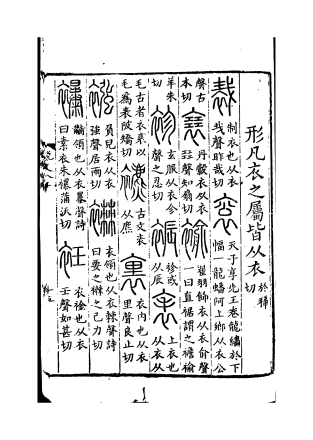 形凡衣之屬皆从衣於稀切
裁制衣也从衣𢦏聲昨哉切袞天子享先王卷龍繡於下幅一龍蟠阿上鄉从衣公
聲古本切𧝑丹縠衣从衣㠭聲知扇切褕翟羽飾衣从衣俞聲一曰直裾謂之襜褕
羊朱切袗玄服从衣㐱聲之忍切裖袗或从辰表上衣也从衣从
毛古者衣裘以毛爲表陂矯切𧞤古文表从麃裏衣内也从衣里聲良止切
襁負兒衣从衣強聲居兩切𧛸衣領也从衣棘聲詩曰要之𧛸之己力切
襮黼領也从衣㬥聲詩曰素衣朱襮蒲沃切衽衣䘳也从衣壬聲如甚切